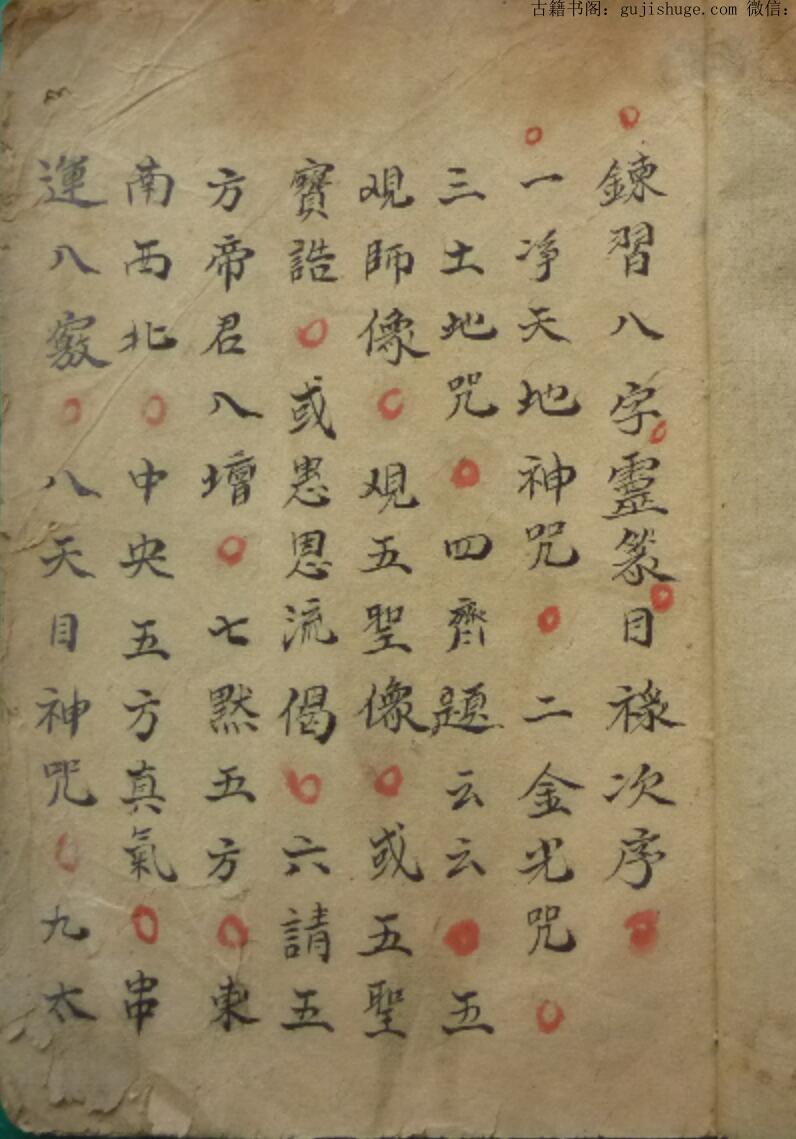 古籍书阁：gujishuge.com 微信：
鍊習八字靈篆目祿次序
一净天地神咒二金光咒
三土地咒四齊題云云五
观師像观五聖像或五聖
寶誥或患恩流偈六請五
方帝君八壇七黙五方東
南西北中央五方真氣串
運八竅八天目神咒九太